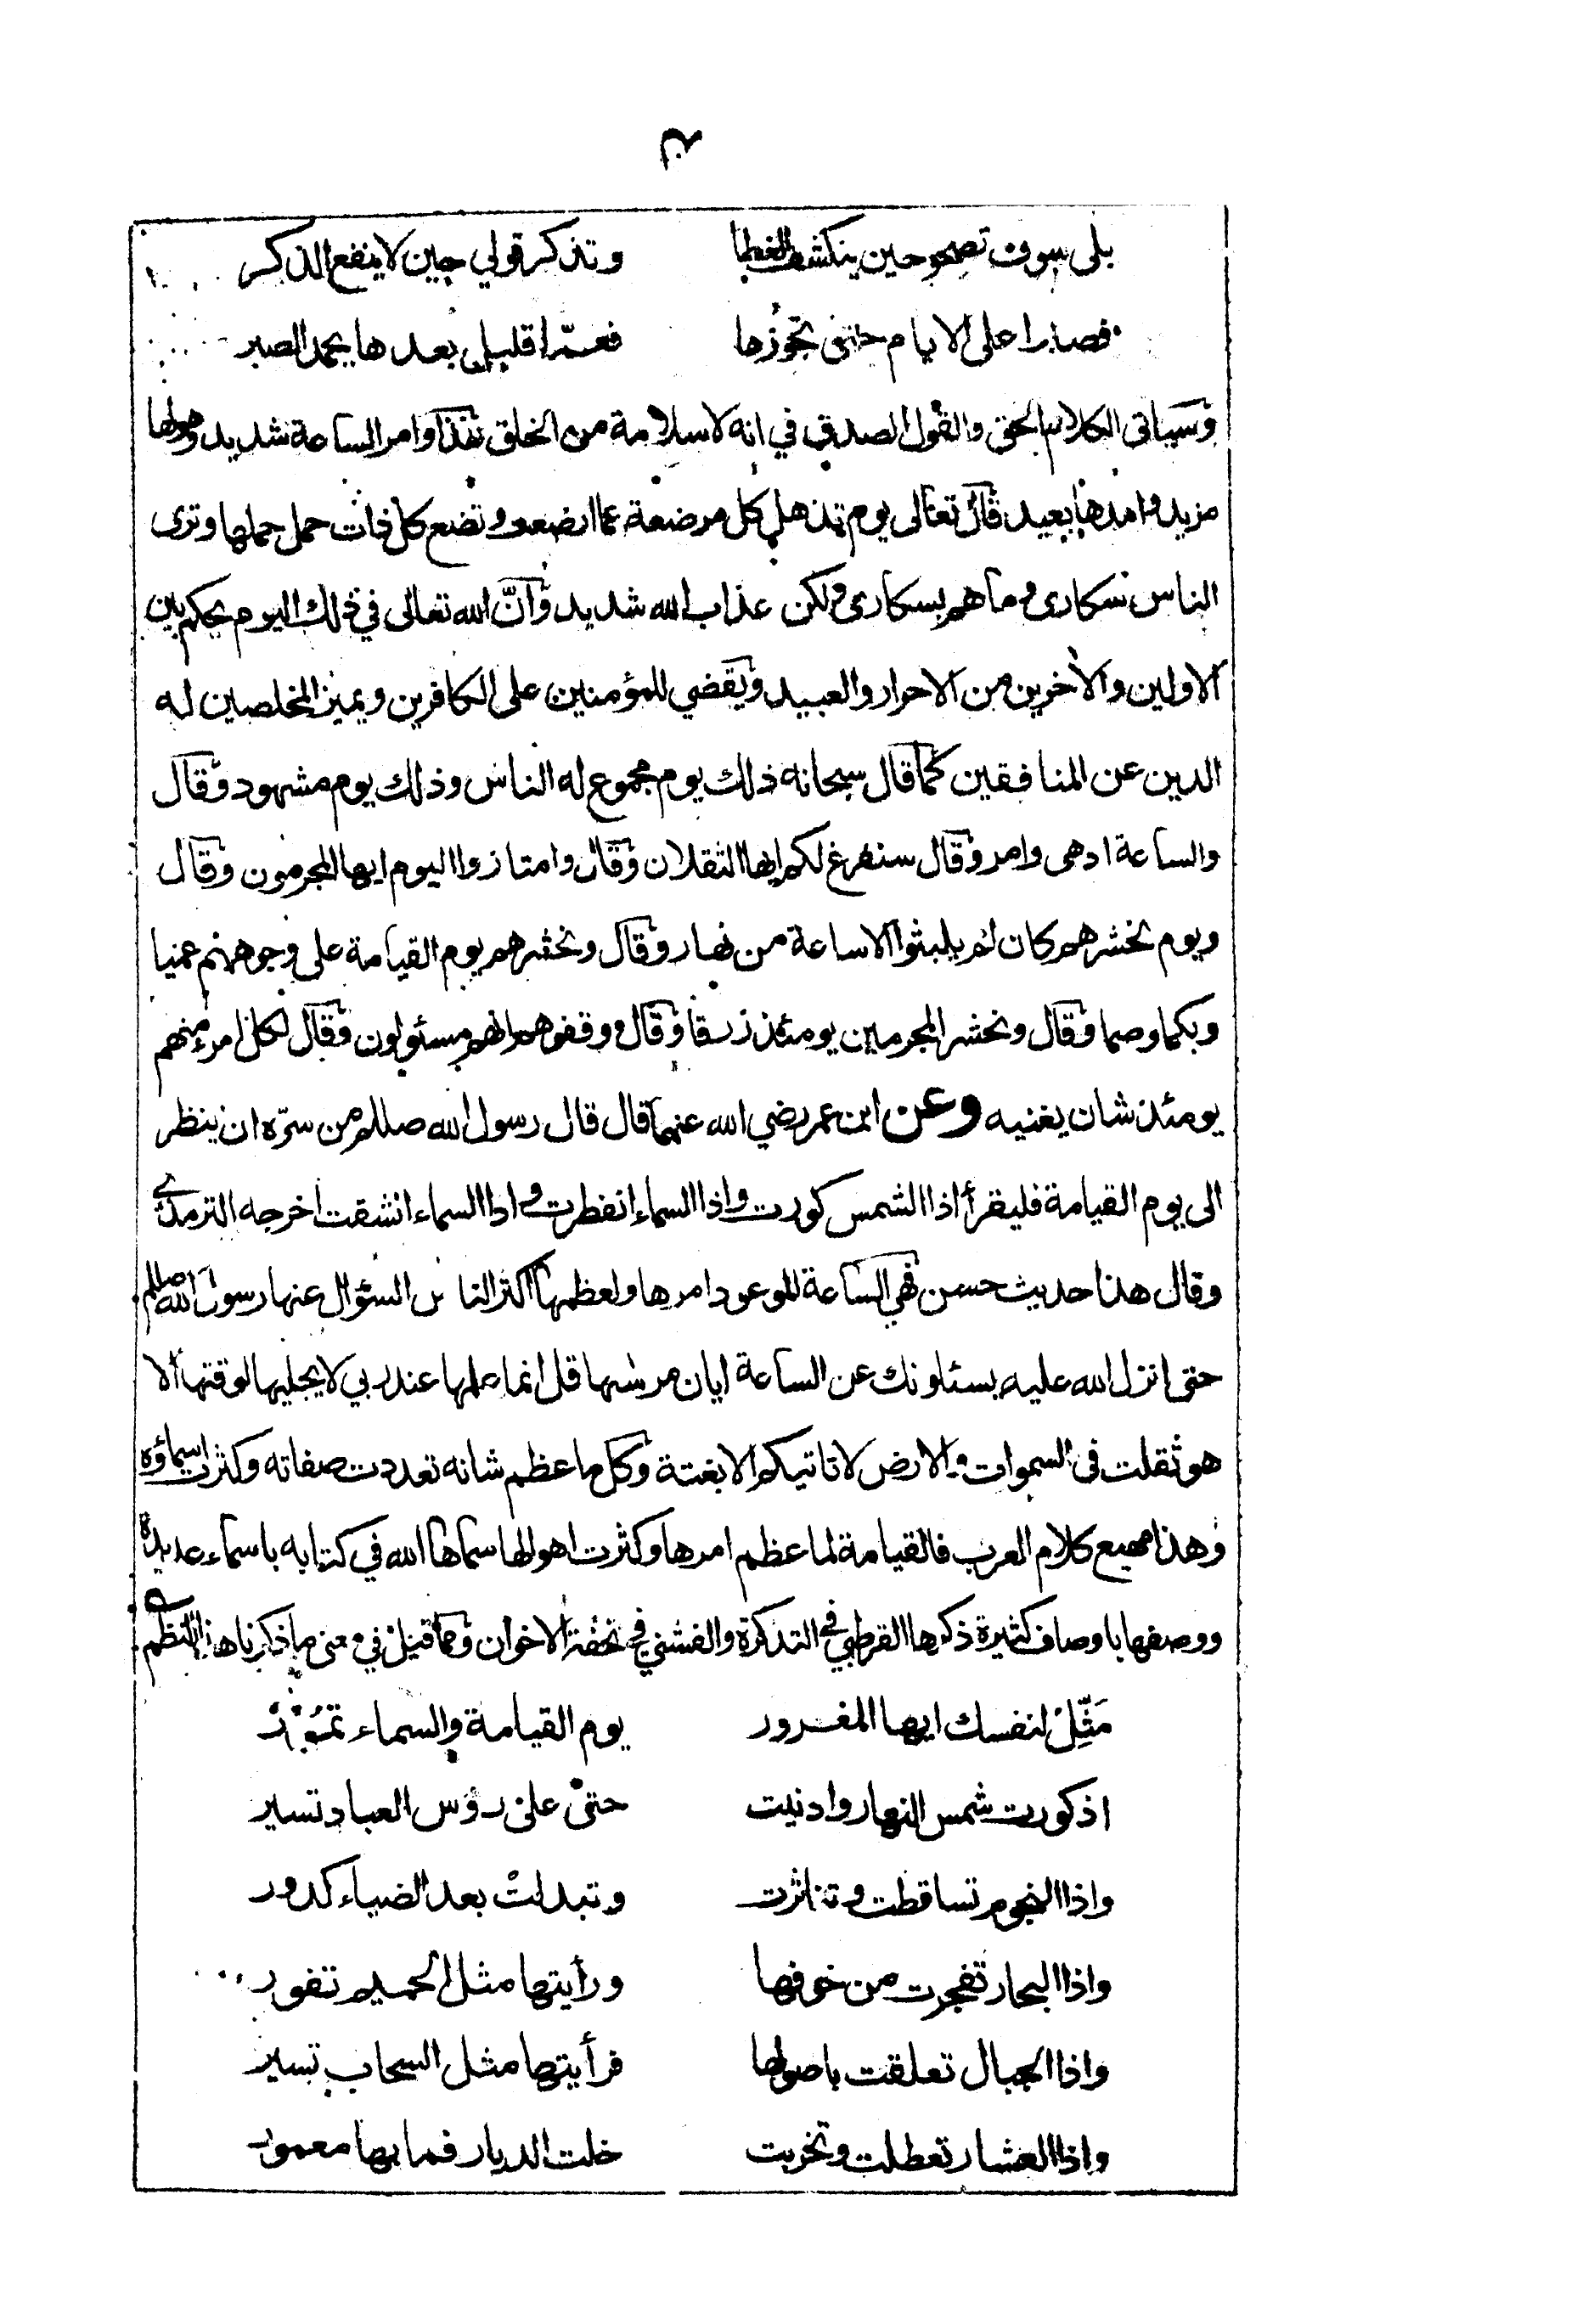 بلى سوف تصحو حين ينكشف الغطا وتذكر قولي حين لا ينفع الذكر
فصبرا على الايام حتى تجوزها فعمّا قليل بعدها يحمد الصبر
وسياتى الكلام الحق والقول الصدق في انه لا سلامة من الخلق هذا وامر الساعة شديد وهولها
مزيد وامدها بعيد قال تعالى يوم تذهل كل مرضعة عما ارضعت وتضع كل ذات حمل حملها وترى
الناس سكارى وما هم بسكارى ولكن عذاب الله شديد وانّ الله تعالى في ذلك اليوم يحكم بين
الاولين والاخرين من الاحرار والعبيد ويقضي للمؤمنين على الكافرين ويميز المخلصين له
الدين عن المنافقين كما قال سبحانه ذلك يوم مجموع له الناس وذلك يوم مشهود وقال
والساعة ادهى وامر وقال سنفرغ لكم ايها الثقلان وقال وامتازوا اليوم ايها المجرمون وقال
ويوم نحشرهم كان لم يلبثوا الا ساعة من نهار وقال ونحشرهم يوم القيامة على وجوههم عميا
وبكما وصما وقال ونحشر المجرمين يومئذ زرقا وقال وقفوهم انهم مسئولون وقال لكل امرء منهم
يومئذ شان يغنيه وعن ابن عمر رضي الله عنهما قال قال رسول الله صللم من سرّه ان ينظر
الى يوم القيامة فليقرأ اذا الشمس كورت واذا السماء انفطرت واذا السماء انشقت اخرجه الترمذي
وقال هذا حديث حسن فهي الساعة الموعود امرها ولعظمها اكثر الناس السؤال عنها رسول الله صللم
حتى انزل الله عليه يسئلونك عن الساعة ايان مرسٰها قل انما علمها عند ربي لا يجليها لوقتها الا
هو ثقلت فى السموات والارض لا تاتيكم الا بغتة وكل ما عظم شانه تعددت صفاته وكثرت اسماؤه
وهذا مهيع كلام العرب فالقيامة لما عظم امرها وكثرت اهوالها سماها الله في كتابه باسماء عديدة
ووصفها باوصاف كثيرة ذكرها القرطبي في التذكرة والفشني في تحفة الاخوان ومما قيل في معنى ما ذكرنا هذا النظم
مَثِّلْ لنفسك ايها المغرور يوم القيامة والسماء تمور
اذ كورت شمس النهار وادنيت حتى على رؤس العباد تسير
واذا النجوم تساقطت وتناثرت وتبدلت بعد الضياء كدور
واذا البحار تفجرت من خوفها ورأيتها مثل الحميم تفور
واذا الجبال تعلقت باصولها فرأيتها مثل السحاب تسير
واذا العشار تعطلت وتخربت خلت الديار فما بها معمور